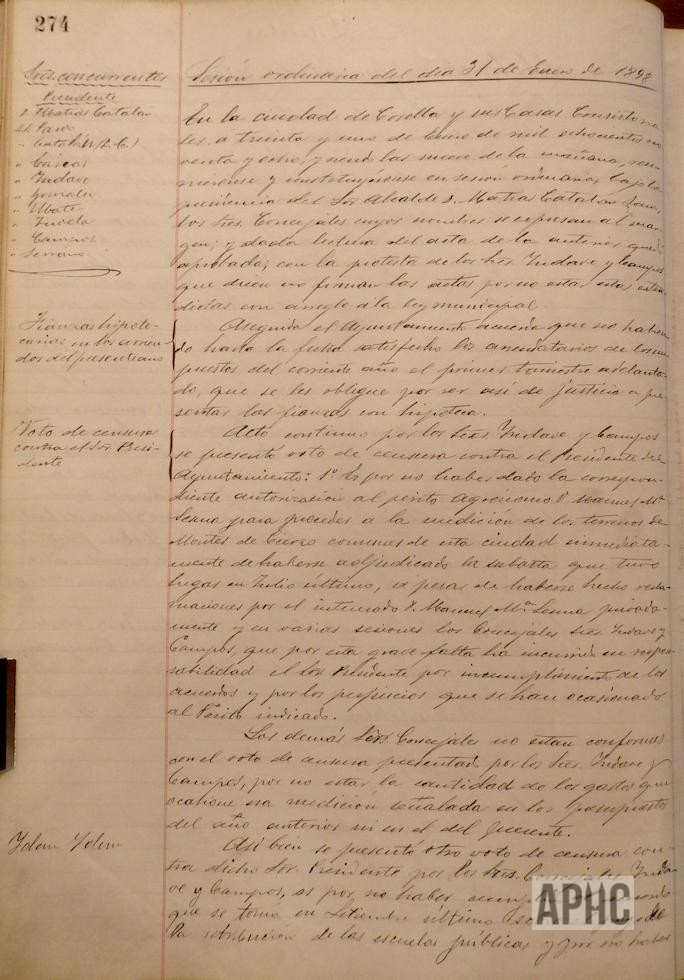 274
Sres. concurrentes
Presidente
D. Matías Catalán
Sres. Pardo
" Catalán (D. C.)
" Garcas
" Indave
" Gonzalez
" Mateo
" Tudela
" Campos
" Serrano
Sesión ordinaria del dia 31 de Enero de 1898
En la ciudad de Corella y sus Casas Consistoria
les, a treinta y uno de Enero de mil ochocientos no
venta y ocho, y siendo las nueve de la mañana, reu
nieronse y constituyéronse en sesion ordinaria, bajo la
presidencia del Sor. Alcalde D. Matias Catalán
los Sres. Concejales cuyos nombres se expresan al mar
gen; y dada lectura del acta de la anterior quedó
aprobada; con la protesta de los Sres. Indave y Campos
que dicen no firman las actas por no estar estas esten
didas con arreglo a la ley municipal.
Fianzas hipote-
carias en los arrien-
dos del presente año
Aseguida el Ayuntamiento acuerda que no habien
do hasta la fecha satisfecho los arrendatarios de los im
puestos del corriente año el primer trimestre adelanta-
do, que se les obligue por ser asi de justicia a pre
sentar las fianzas con hipoteca.
Voto de censura
contra el Sor. Presi-
dente
Acto continuo por los Sres. Indave y Campos
se presentó voto de censura contra el Presidente del
Ayuntamiento: 1º Es por no haber dado la correspon-
diente autorización al perito Agronomo D. Manuel Mª
Sesma para proceder a la medición de los terrenos de
Montes de Cierzo comunes de esta ciudad inmediata-
mente de haberse adjudicado la subasta que tuvo
lugar en Julio último, a pesar de haberse hecho recla-
maciones por el interesado D. Manuel Mª Sesma privada-
mente y en varias sesiones los Concejales Sres. Indave y
Campos, que por esta grave falta ha incurrido en respon-
sabilidad el Sor. Presidente por incumplimiento de los
acuerdos y por los perjuicios que se han ocasionado
al Perito indicado.
Los demás Sres. Concejales no estan conformes
con el voto de censura presentado por los Sres. Indave y
Campos, por no estar la cantidad de los gastos que
ocasione esa medición señalada en los presupuestos
del año anterior ni en el del presente.
Idem Idem
Asi bien se presentó otro voto de censura con-
tra dicho Sor. Presidente por los Sres. Concejales Inda-
ve y Campos, es por no haber
que se tomó en Setiembre último
la retribución de las escuelas públicas y por no haber
APHC